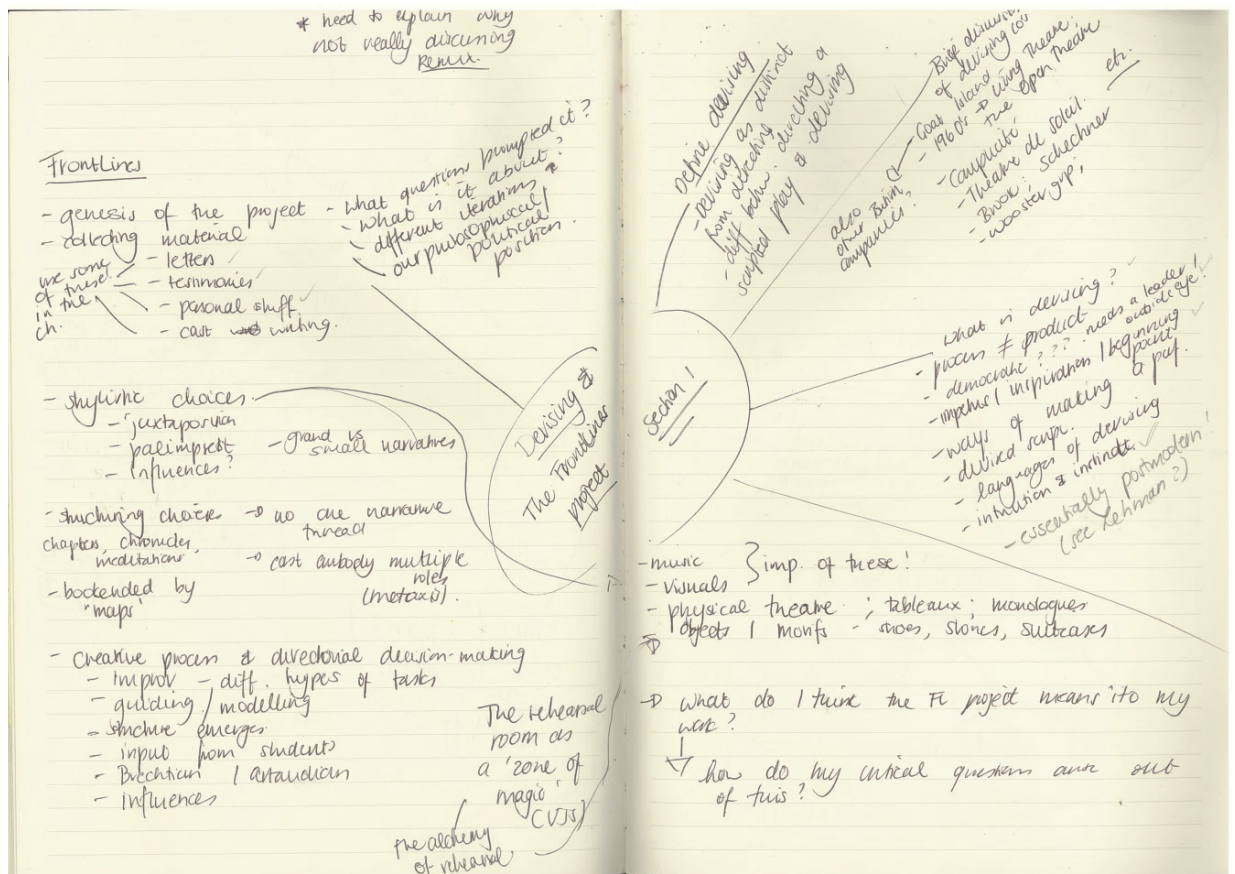 * need to explain why
not really discussing
Remix.
Frontlines
- genesis of the project
- collecting material
- letters
- testimonies
- personal stuff
- cast writing.
use some
of these
in the
ch.
- What questions prompted it?
- What is it about?
- different iterations &
our philosophical /
political
position
- stylistic choices
- juxtaposition
- palimpsest
- influences?
- grand vs
small narratives
- structuring choices
chapters, chronicles,
meditations
- bookended by
"maps"
→ no one narrative
thread
→ cast embody multiple
roles
(metaxis).
- Creative process & directorial decision-making
- improv - diff. types of tasks
- guiding / modelling
- structure emerges
- input from students
- Brechtian / Artaudian
- influences
The rehearsal
room as
a 'zone of
magic'
the alchemy
of rehearsal
Devising &
The Frontlines
project
Section 1
Define devising
- Devising as distinct
from directing
- diff betw. directing a
scripted play & devising
Brief discussion
of devising cos
- Goat Island
- 1960s → Living Theatre
the Open Theatre
- Complicité
- Theatre de soleil.
- Brook; Schechner
- Wooster grp;
etc.
also
other British
companies?
What is devising?
- process ≠ product
- democratic??? needs a leader!
outside eye!
- impetus / inspiration / beginning
points
- ways of making a perf.
- devised script.
- languages of devising
- intuition & instinct
- essentially postmodern!
(see Lehman?)
- music
- visuals
} imp. of these!
- physical theatre ; tableaux ; monologues
objects / motifs - shoes, stones, suitcases
→ What do I think the FL project means ito my
work?
how do my critical questions arise out
of this?